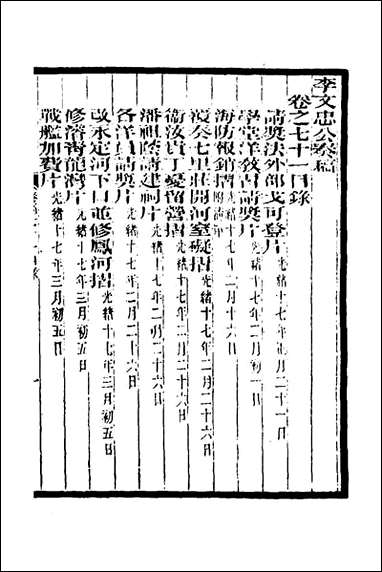 李文忠公奏稿
卷之七十一目錄
請獎法外部戈可登片光緒十七年正月二十一日
學堂洋教習請獎片光緒十七年二月初一日
海防報銷摺光緒十七年二月十六日 附清單
覆奏七里莊開河窒礙摺光緒十七年二月二十六日
衞汝貴丁憂留營摺光緒十七年二月二十六日
潘祖蔭請建祠片光緒十七年二月二十六日
各洋員請獎片光緒十七年二月二十六日
改永定河下口並修鳳河摺光緒十七年三月初五日
修濬青龍灣片光緒十七年三月初五日
戰艦加費片光緒十七年三月初五日